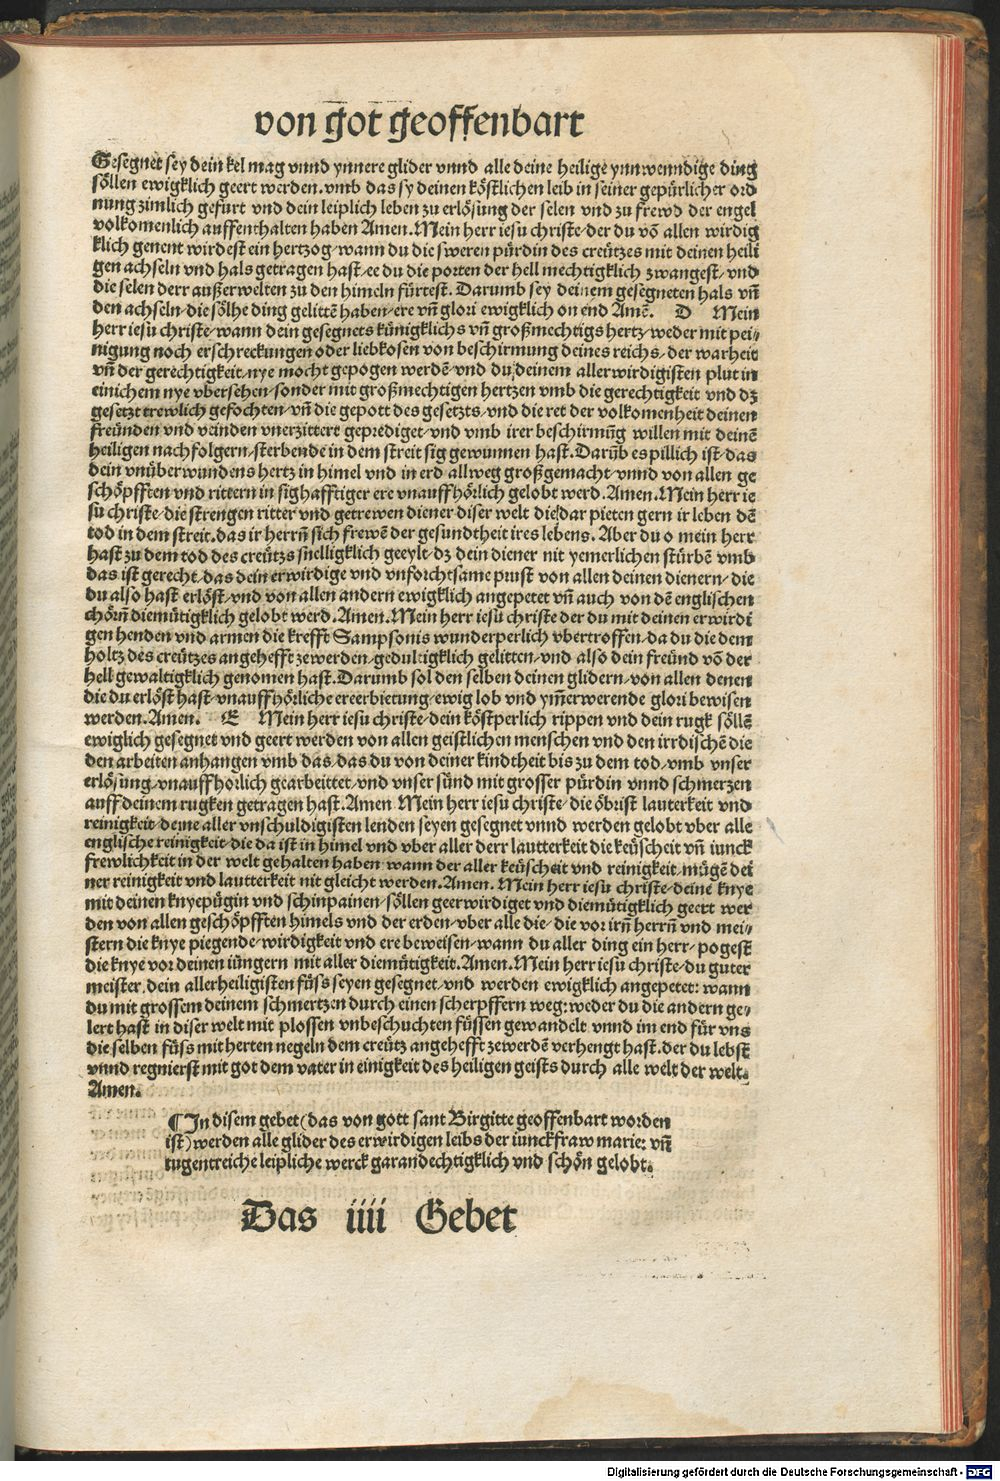 von got geoffenbart
Gesegnet sey dein kel mag vnnd ynnere glider vnnd alle deine heilige ynnwenndige ding
söllen ewigklich geert werden. vmb das sy deinen köstlichen leib in seiner gepürlicher ord
nung zimlich gefurt vnd dein leiplich leben zu erlösung der selen vnd zu frewd der engel
volkomenlich auffenthalten haben Amen. Mein herr iesu christe der du võ allen wirdig
klich genent wirdest ein hertzog wann du die sweren pürdin des creützes mit deinen heili
gen achseln vnd hals getragen hast ee du die porten der hell mechtigklich zwangest vnd
die selen derr außerwelten zu den himeln fürtest. Darumb sey deinem gesegneten hals vñ
den achseln die sölhe ding gelittẽ haben ere vñ glori ewigklich on end Amẽ. D Mein
herr iesu christe wann dein gesegnets künigklichs vñ großmechtigs hertz weder mit pei⸗
nigung noch erschreckungen oder liebkosen von beschirmung deines reichs der warheit
vñ der gerechtigkeit nye mocht gepogen werdẽ vnd du deinem allerwirdigisten plut in
einichem nye vbersehen sonder mit großmechtigen hertzen vmb die gerechtigkeit vnd dz
gesetzt trewlich gefochten vñ die gepott des gesetzts vnd die ret der volkomenheit deinen
freünden vnd veinden vnerzittert geprediget vnd vmb irer beschirmũg willen mit deinẽ
heiligen nachfolgern sterbende in dem streit sig gewunnen hast. Darũb es pillich ist das
dein vnüberwundens hertz in himel vnd in erd allweg großgemacht vnnd von allen ge
schöpfften vnd rittern in sighafftiger ere vnauffhörlich gelobt werd. Amen. Mein herr ie
su christe die strengen ritter vnd getrewen diener diser welt die dar pieten gern ir leben dẽ
tod in dem streit. das ir herrñ sich frewẽ der gesundtheit ires lebens. Aber du o mein herr
hast zu dem tod des creützs snelligklich geeylt dz dein diener nit yemerlichen stürbẽ vmb
das ist gerecht das dein erwirdige vnd vnforchtsame prust von allen deinen dienern die
du also hast erlöst vnd von allen andern ewigklich angepetet vñ auch von dẽ englischen
chörñ diemütigklich gelobt werd. Amen. Mein herr iesu christe der du mit deinen erwirdi
gen henden vnd armen die krefft Sampsonis wunderperlich vbertroffen da du die dem
holtz des creützes angehefft zewerden gedultigklich gelitten vnd also dein freünd võ der
hell gewaltigklich genomen hast. Darumb sol den selben deinen glidern von allen denen
die du erlöst hast vnauffhörliche ereerbietung ewig lob vnd ym̃erwerende glori bewisen
werden. Amen. E Mein herr iesu christe dein köstperlich rippen vnd dein rugk söllẽ
ewiglich gesegnet vnd geert werden von allen geistlichen menschen vnd den irrdischẽ die
den arbeiten anhangen vmb das das du von deiner kindtheit bis zu dem tod vmb vnser
erlösung vnauffhorlich gearbeittet vnd vnser sünd mit grosser pürdin vnnd schmerzen
auff deinem rugken getragen hast. Amen Mein herr iesu christe die öbrist lauterkeit vnd
reinigkeit deine aller vnschuldigisten lenden seyen gesegnet vnnd werden gelobt vber alle
englische reinigkeit die da ist in himel vnd vber aller derr lautterkeit die keüscheit vñ iunck
frewlichkeit in der welt gehalten haben wann der aller keüscheit vnd reinigkeit mügẽ dei
ner reinigkeit vnd lautterkeit nit gleicht werden. Amen. Mein herr iesu christe deine knye
mit deinen knyepügin vnd schinpainen söllen geerwirdiget vnd diemütigklich geert wer
den von allen geschöpfften himels vnd der erden vber alle die die vor irñ herrñ vnd mei⸗
stern die knye piegende wirdigkeit vnd ere beweisen wann du aller ding ein herr pogest
die knye vor deinen iüngern mit aller diemütigkeit. Amen. Mein herr iesu christe du guter
meister. dein allerheiligisten füss seyen gesegnet vnd werden ewigklich angepetet: wann
du mit grossem deinem schmertzen durch einen scherpffern weg: weder du die andern ge⸗
lert hast in diser welt mit plossen vnbeschuchten füssen gewandelt vnnd im end für vns
die selben füss mit herten negeln dem creütz angehefft zewerdẽ verhengt hast. der du lebst
vnnd regnierst mit got dem vater in einigkeit des heiligen geists durch alle welt der welt.
Amen.
¶ In disem gebet (das von gott sant Birgitte geoffenbart worden
ist) werden alle glider des erwirdigen leibs der iunckfraw marie: vñ
tugentreiche leipliche werck garandechtigklich vnd schön gelobt.
Das iiii Gebet
Digitalisierung gefördert durch die Deutsche Forschungsgemeinschaft - DFG